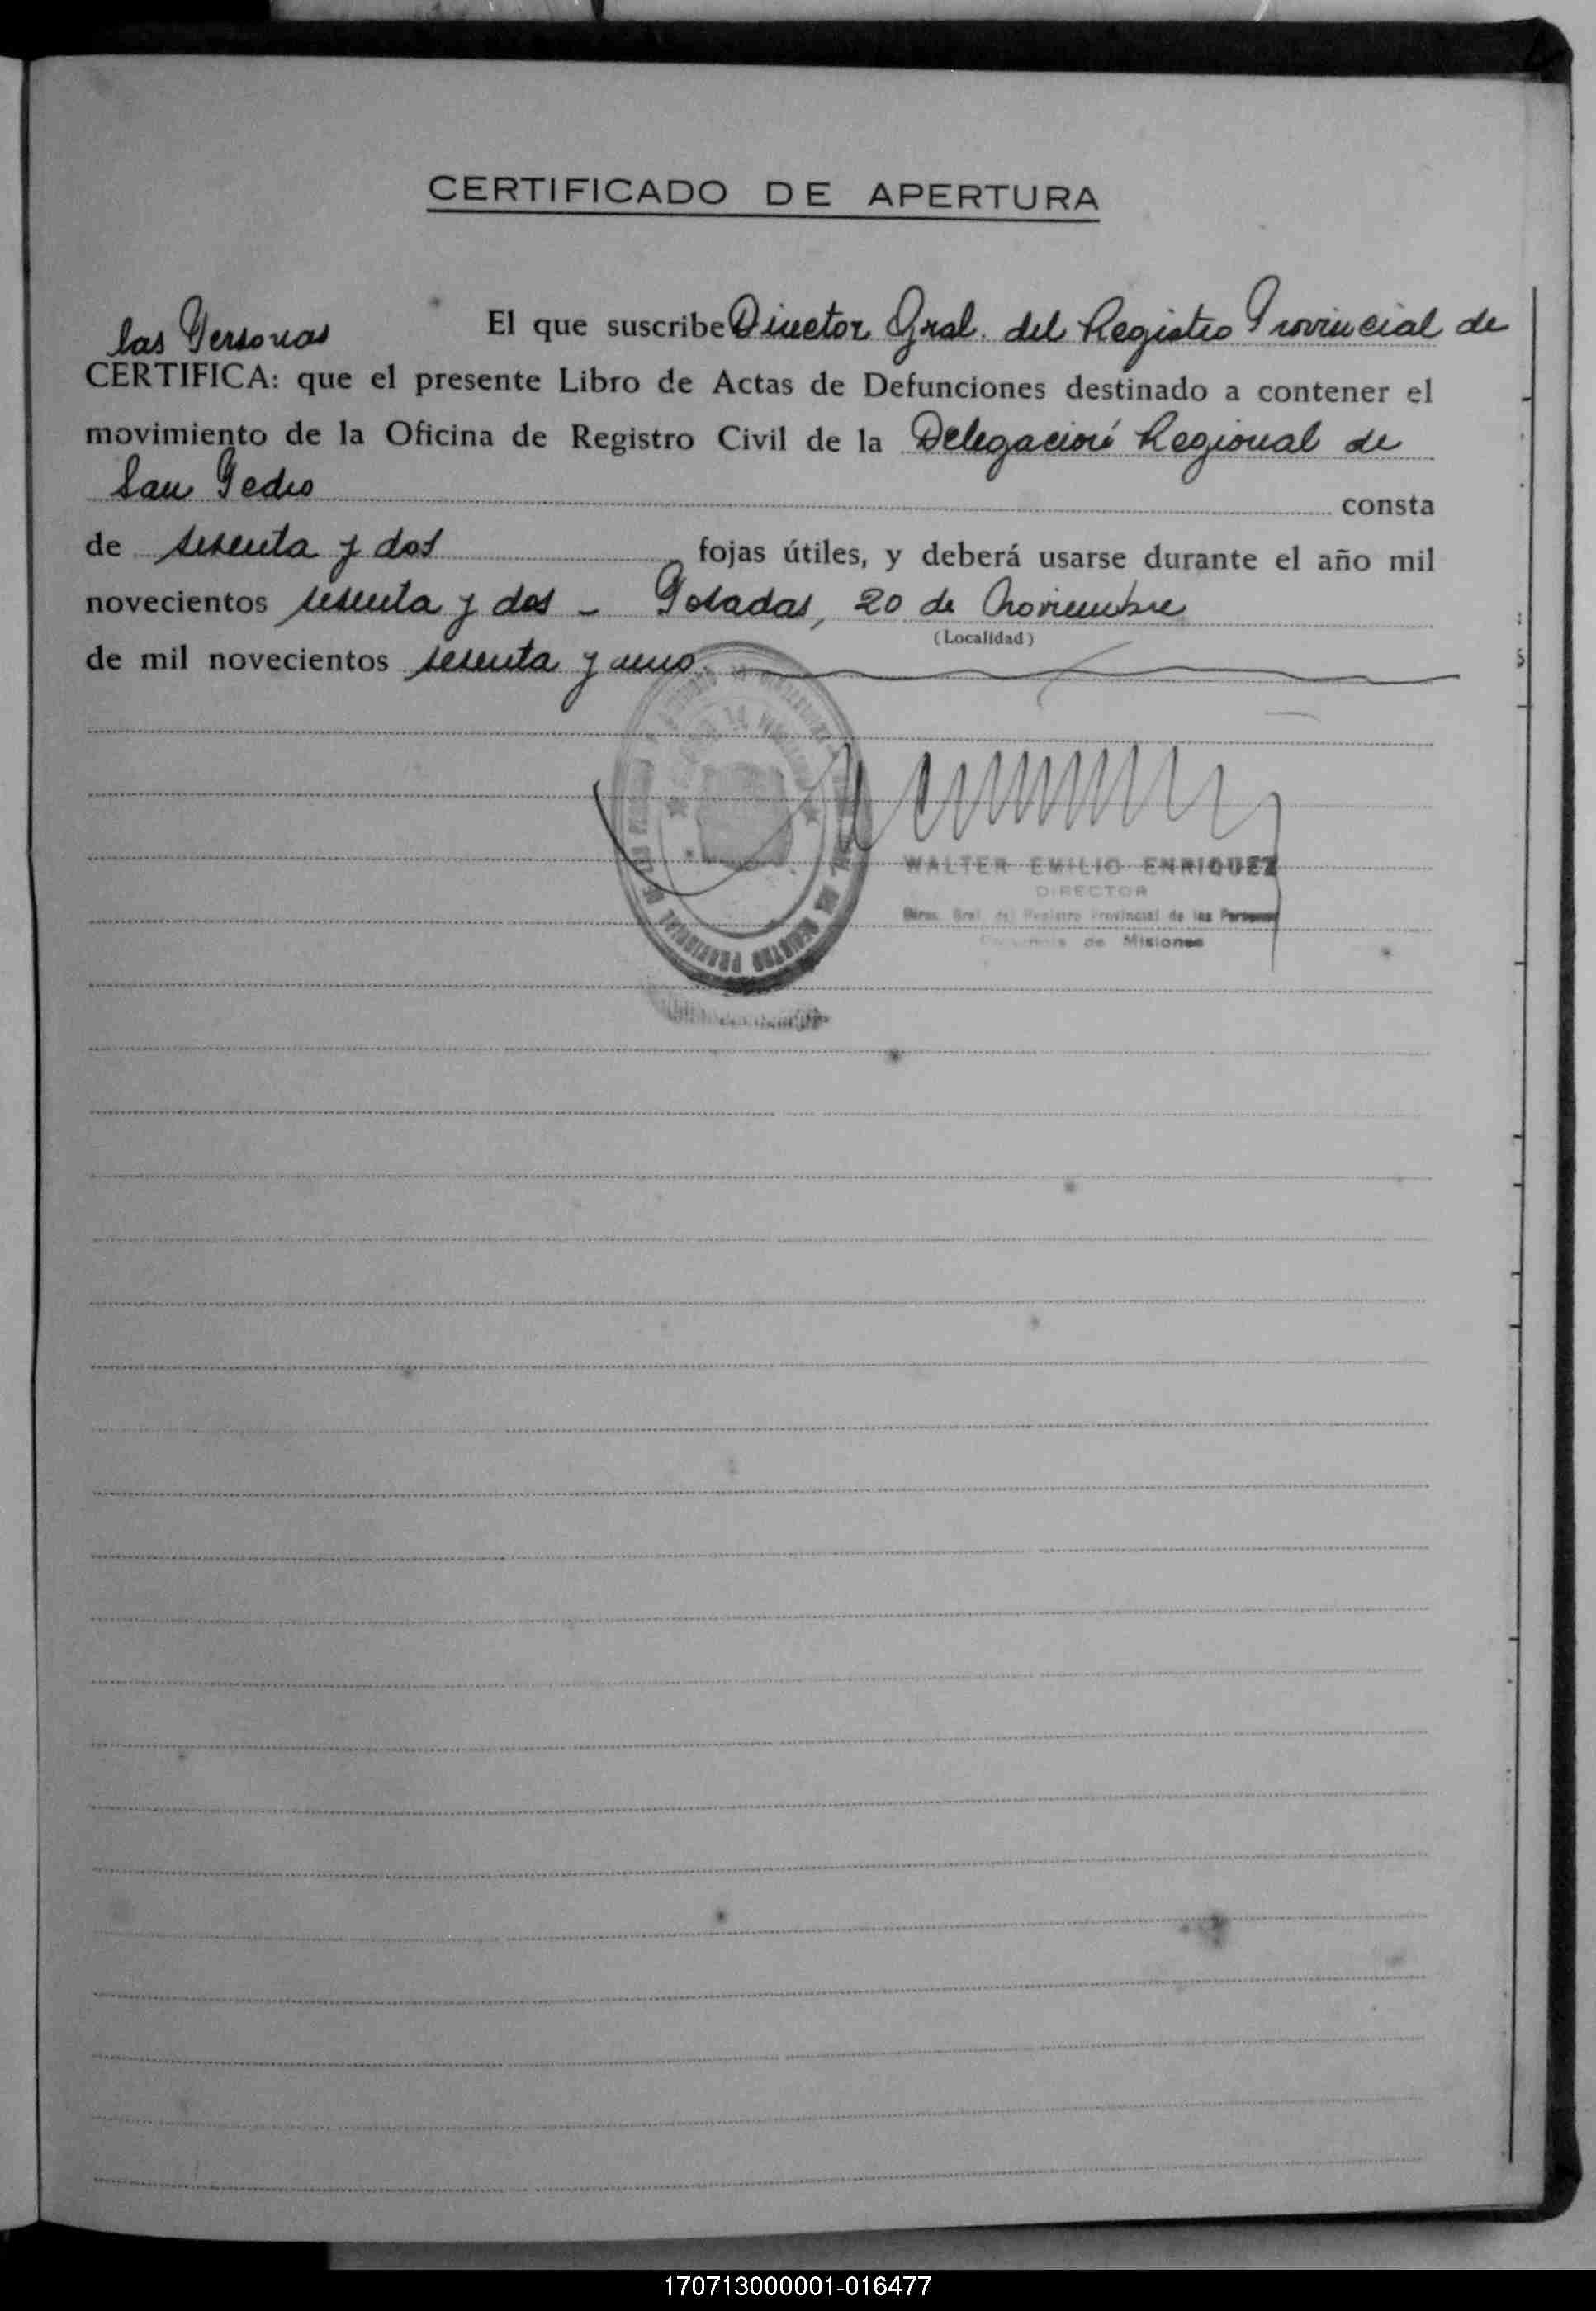 CERTIFICADO DE APERTURA
El que suscribe Director Gral. del Registro Provincial de
las Personas
CERTIFICA: que el presente Libro de Actas de Defunciones destinado a contener el
movimiento de la Oficina de Registro Civil de la Delegación Regional de
San Pedro consta
de sesenta y dos fojas útiles, y deberá usarse durante el año mil
novecientos sesenta y dos - Posadas, 20 de Noviembre
(Localidad)
de mil novecientos sesenta y uno.
WALTER EMILIO ENRIQUEZ
DIRECTOR
Direc. Gral. del Registro Provincial de las Personas
de Misiones
REGISTRO PROVINCIAL DE LAS
170713000001-016477